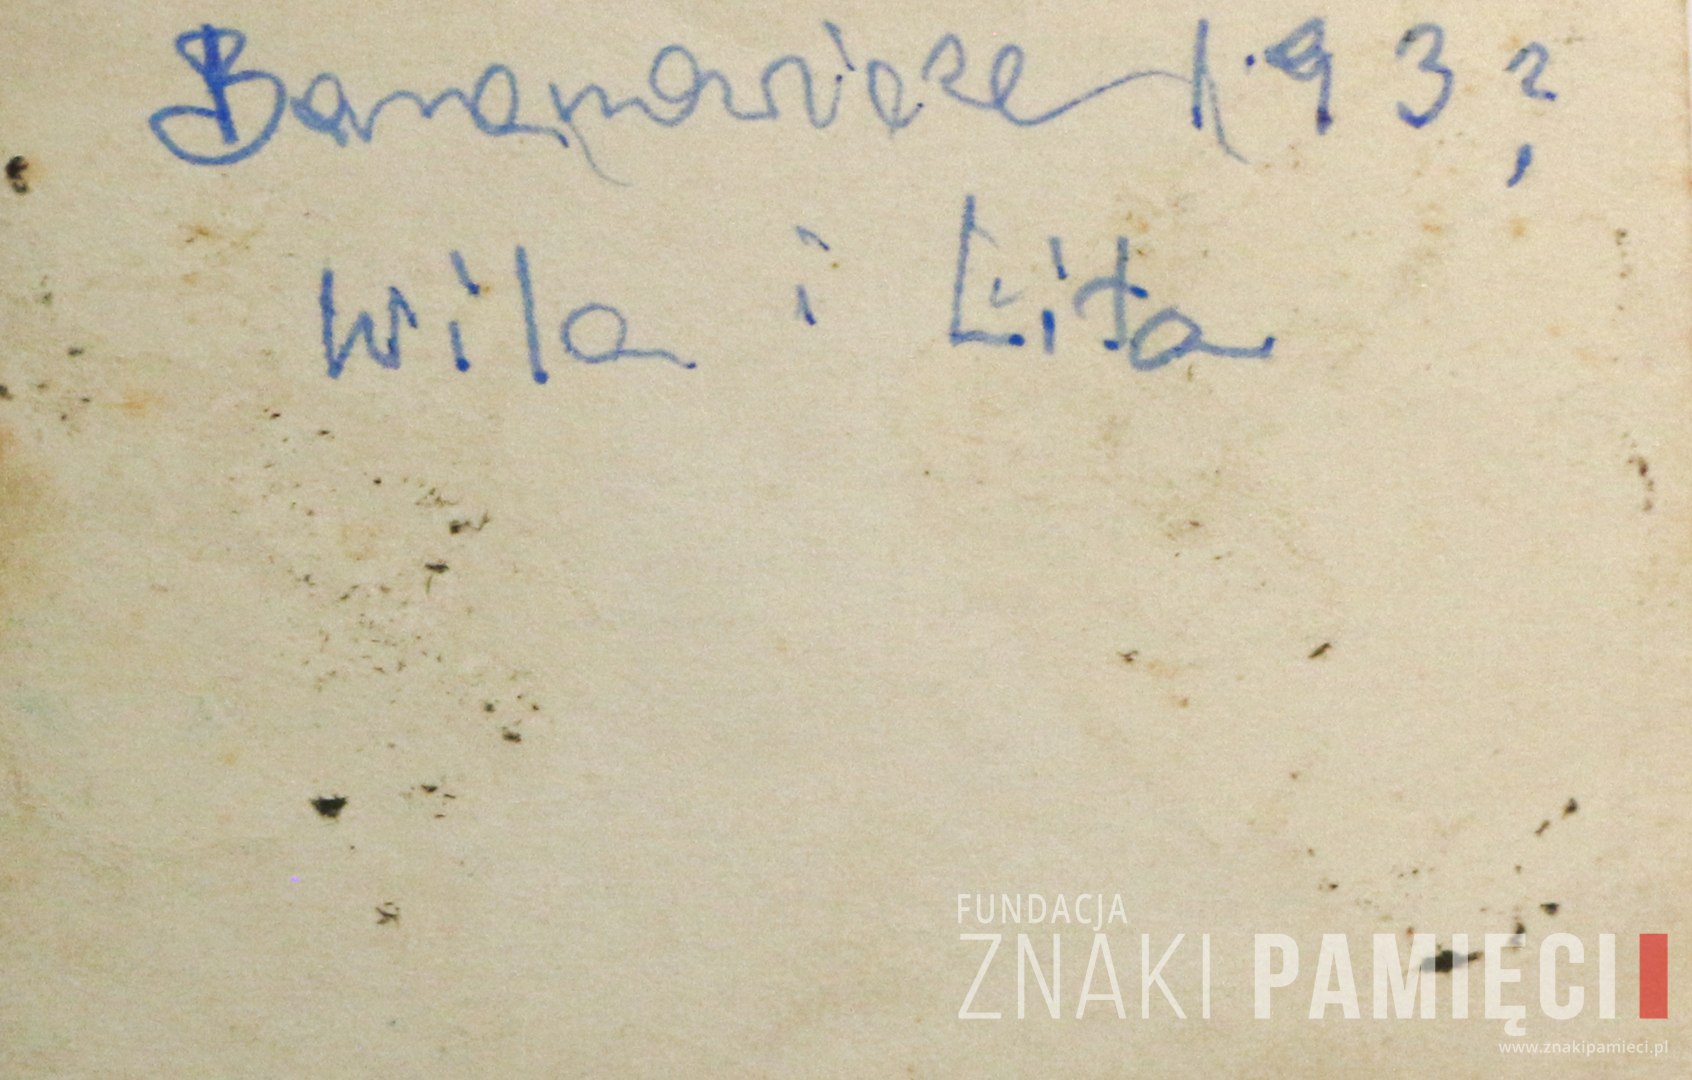 Baranowicze 193?
Wila i Lita
FUNDACJA
ZNAKI PAMIĘCI
www.znakipamieci.pl